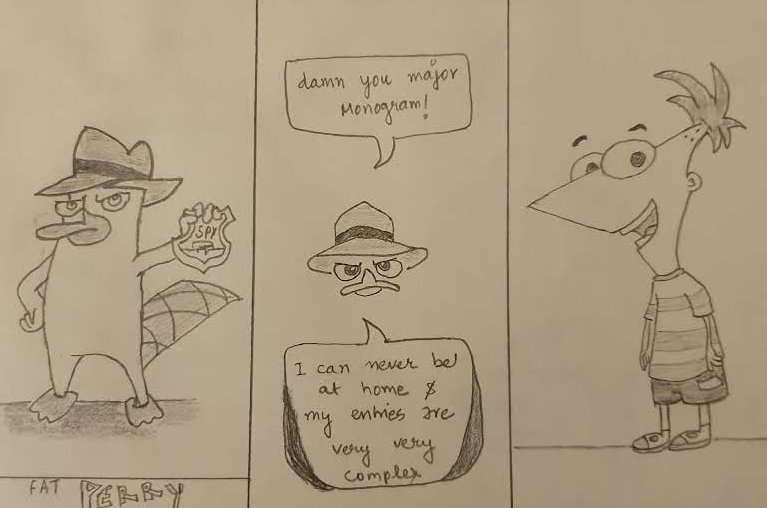 SPY
FAT PERRY
damn you major
Monogram!
I can never be
at home &
my entries are
very very
complex